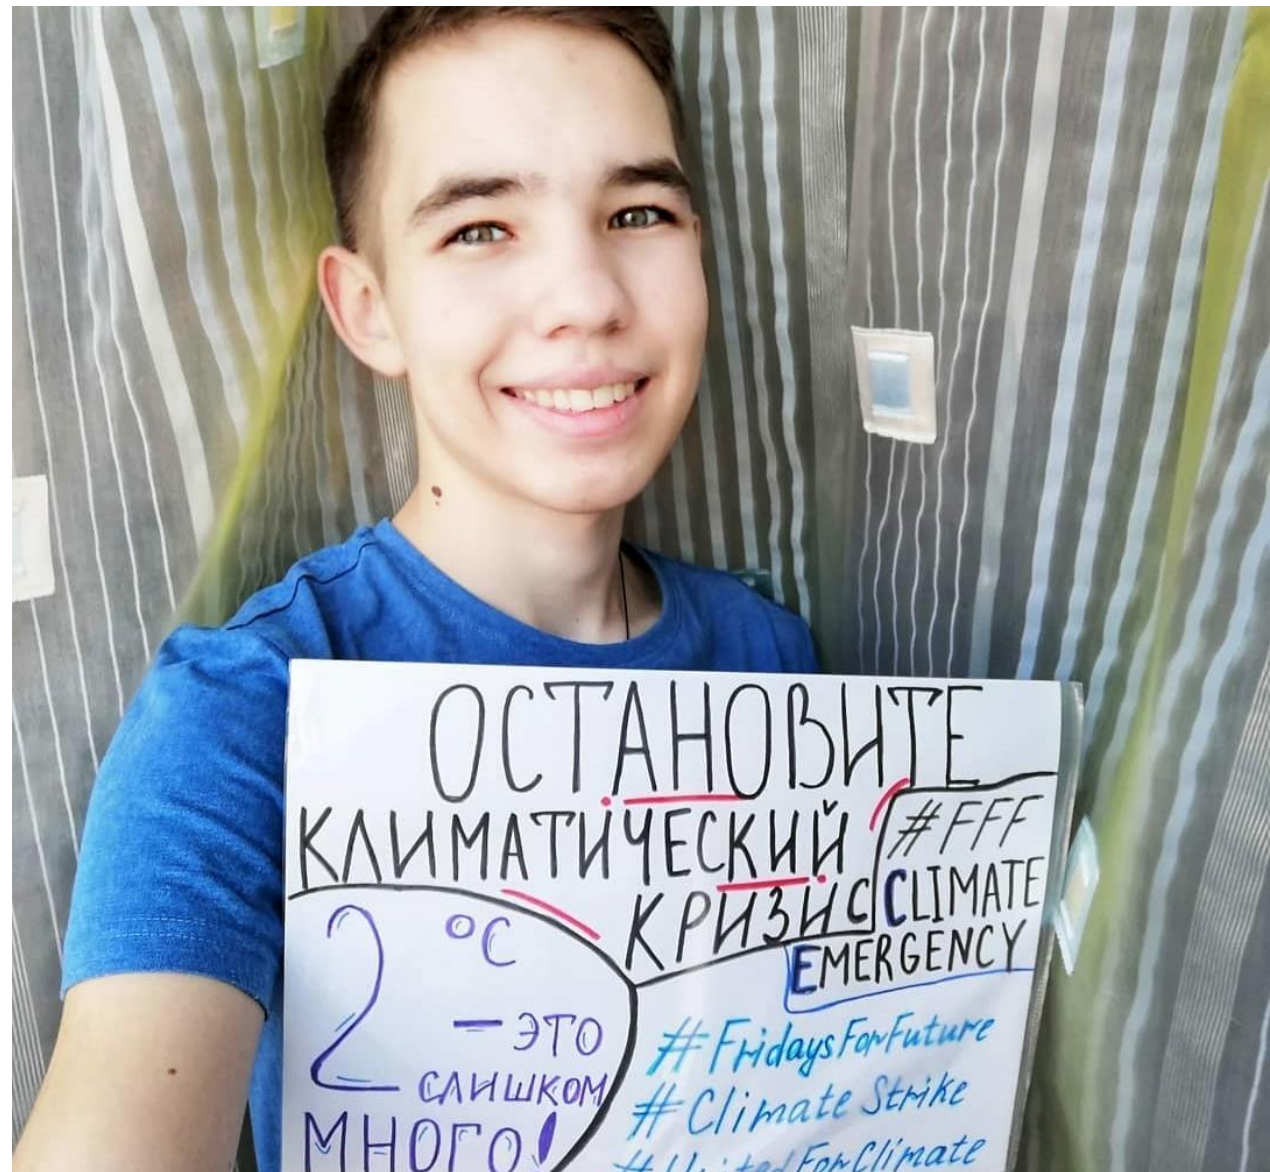 ОСТАНОВИТЕ
КЛИМАТИЧЕСКИЙ
КРИЗИС
#FFF
CLIMATE
EMERGENCY
2 °C
— ЭТО
СЛИШКОМ
МНОГО!
#FridaysForFuture
#Climate Strike
#United For Climate